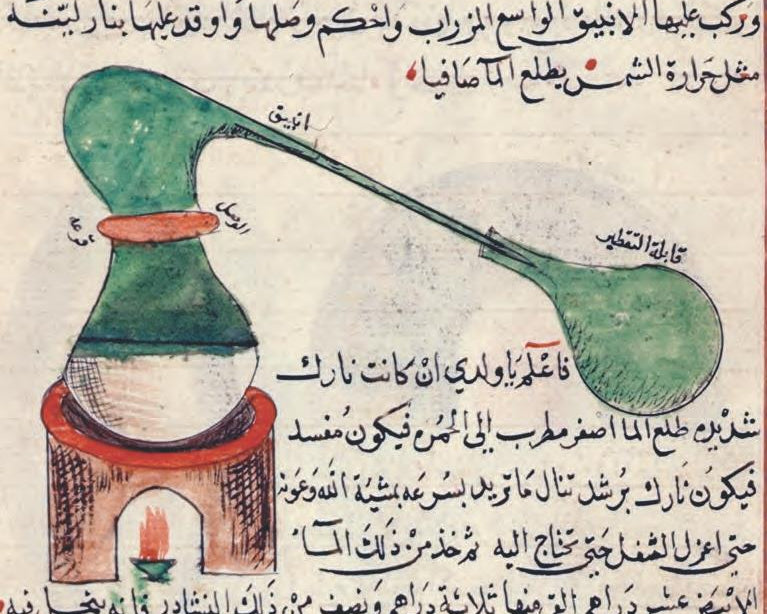 وركب عليها الانبيق الواسع المزراب واحكم وصلها واوقد عليها بنار لينة
مثل حرارة الشمس يطلع الما صافيا
انبيق
الوصل
قرعة
قابلة التقطير
فاعلم يا ولدي ان كانت نارك
شديده طلع الما اصفر مطرب الى الحمره فيكون مفسد
فيكون نارك برشد تنال ما تريد بسرعه بمشية الله وعونه
حتى اعزل الثفل حتى تحتاج اليه ثم خذ من ذلك الما
عشر دراهم ثلاثة دراهم ونصف من ذلك النشادر فانه ينحل فيه